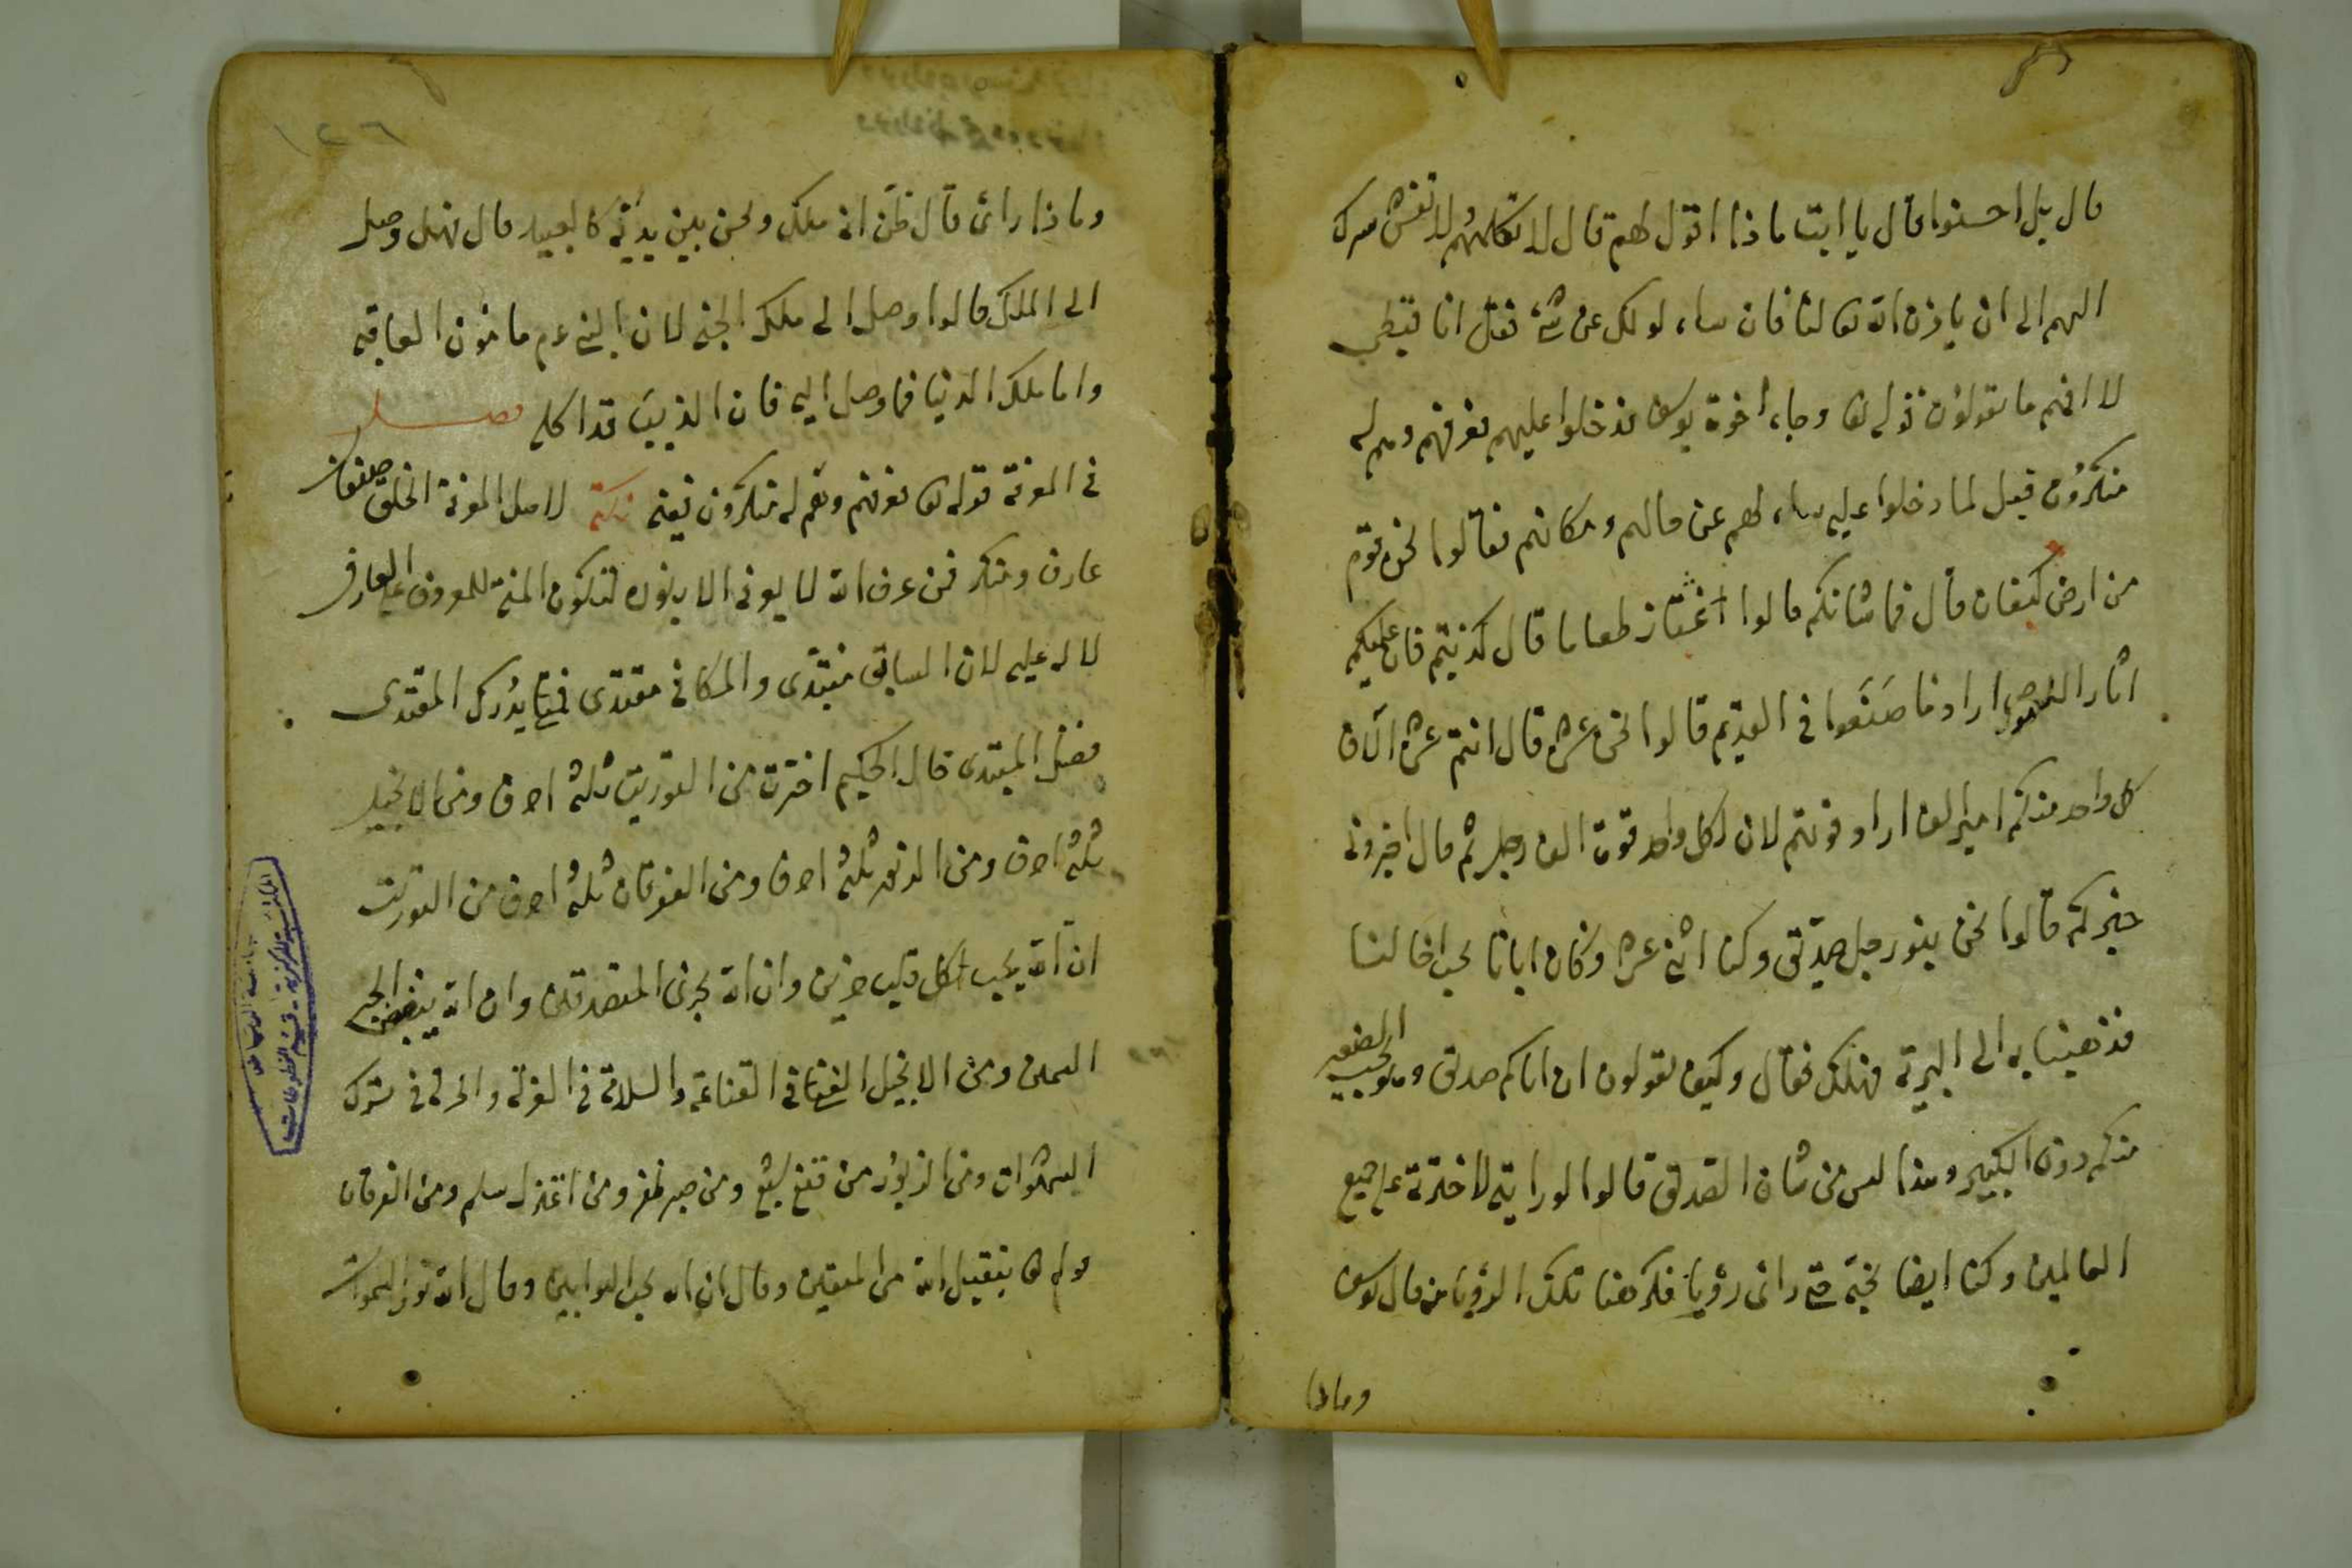 قال بل احسنوا قال يا ابت ماذا اقول لهم قال لا تكلمهم ولا تفش سرك
اليهم الى ان ياذن الله تعا لنا فان ساءلوك عن شئ فقل انا قبطى
لا افهم ما تقولون قوله تعا وجاء اخوة يوسف فدخلوا عليهم فعرفهم وهم له
منكرون قيل لما دخلوا عليه ساءلهم عن حالهم ومكانهم فقالوا نحن قوم
من ارض كنعان قال فما شانكم قالوا نمتار طعاما قال كذبتم فان عليكم
اثار اللصوص اراد ما صنعوا فى القديم قالوا نحن عشرة قال انتم عشرة آلاف
كل واحد منكم امير الف اراد قوتهم لان لكل واحد قوت الف رجل ثم قال اخبرونى
خبركم قالوا نحن بنو رجل صديق وكنا اثنى عشر وكان ابانا يحب اخا لنا
فذهبنا به الى البرية فهلك فقال وكيف تقولون ان اباكم صديق وهو يحب الصغير
منكم دون الكبير وهذا ليس من شان الصديق قالوا لو رايته لاخترته على جميع
العالمين وكنا ايضا نحبه حتى راى رؤيا فكرهنا تلك الرؤيا منه قال يوسف
وماذا
١٢٦
وماذا راى قال ظن انه ملك ونحن بين يديه كالعبيد قال فهل وصل
الى الملك قالوا وصل الى ملك الجنة لان ابن النبى عم مامون العاقبة
واما ملك الدنيا فما وصل اليه فان الذيب قد اكله فصل
فى المعرفة قوله تعا فعرفهم وهم له منكرون فيه نكتة لاهل المعرفة الخلق صنفان
عارف ومنكر فمن عرف الله لا يعرفه الا بنوره لتكون المنة للمعروف على العارف
لا له عليه لان السابق مبتدى والمكافى مقتدى فمتى يدرك المقتدى
فضل المبتدى قال الحكيم اخترت من التوريت ثلثة احرف ومن الانجيل
ثلثة احرف ومن الزبور ثلثة احرف ومن الفرقان ثلثة احرف من التوريت
ان الله يحب كل قلب حزين وان الله يجزى المتصدقين وان الله يبغض الحبر
السمين ومن الانجيل الغنا فى القناعة والسلامة فى العزلة والحرية فى ترك
الشهوات ومن الزبور من قنع شبع ومن صبر ظفر ومن اعتزل سلم ومن الفرقان
قوله تعا يتقبل الله من المتقين وقال ان الله يحب التوابين وقال الله نور السموات